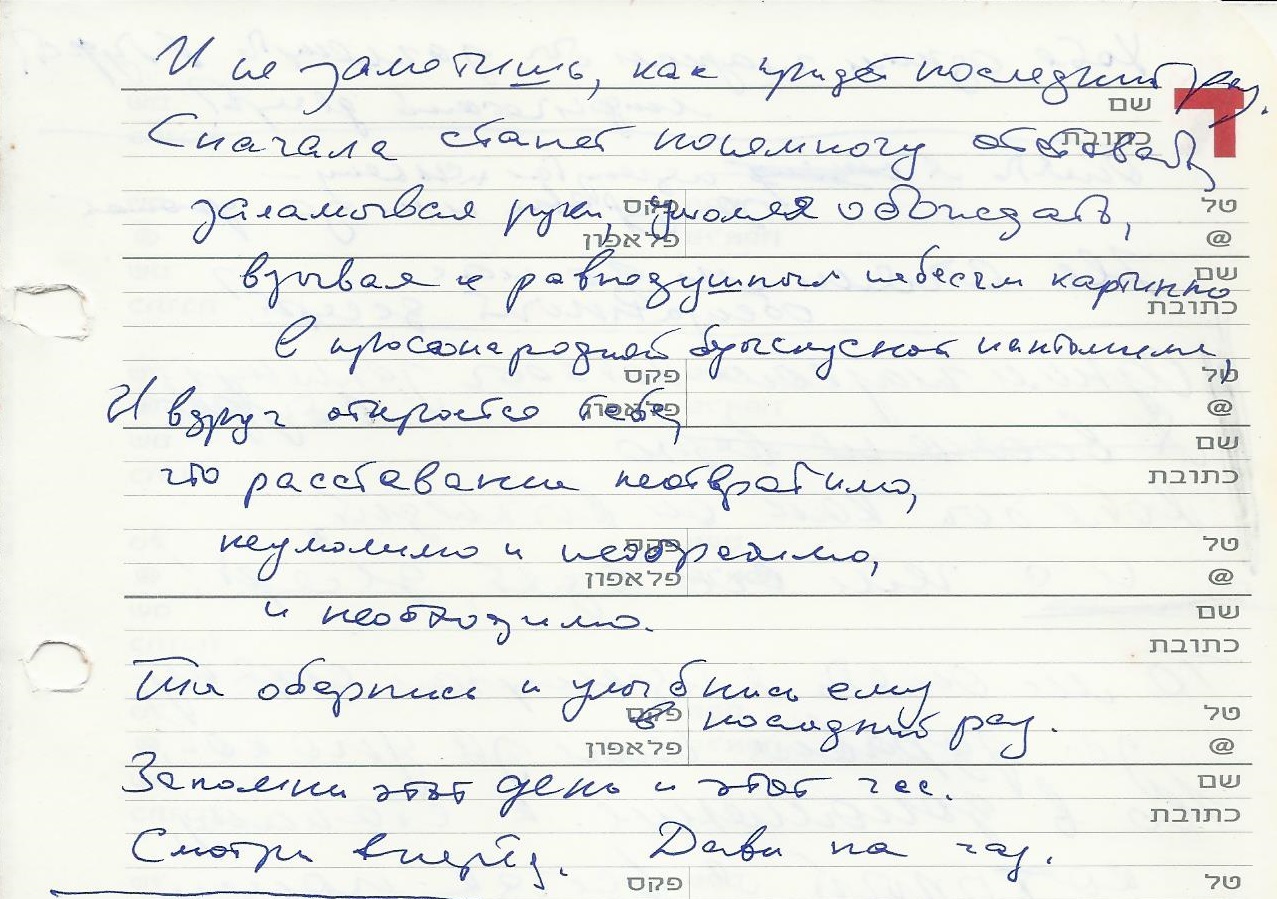 И не заметишь, как придёт последний раз.
שם
Сначала станет понемногу отставать,
כתובת
заламывая руки, умоляя обождать,
פקס טל
פלאפון @
взывая к равнодушным небесам картинно
שם
כתובת
В простонародной пантомиме,
פקס טל
И вдруг откроется тебе,
פלאפון @
שם
что расставание неотвратимо,
כתובת
неумолимо и необозримо,
פקס טל
פלאפון @
и необходимо.
שם
כתובת
Ты обернись и улыбнись ему
в последний раз.
פקס טל
פלאפון @
Запомни этот день и этот час.
שם
כתובת
Смотри вперёд. Дави на газ.
פקס טל